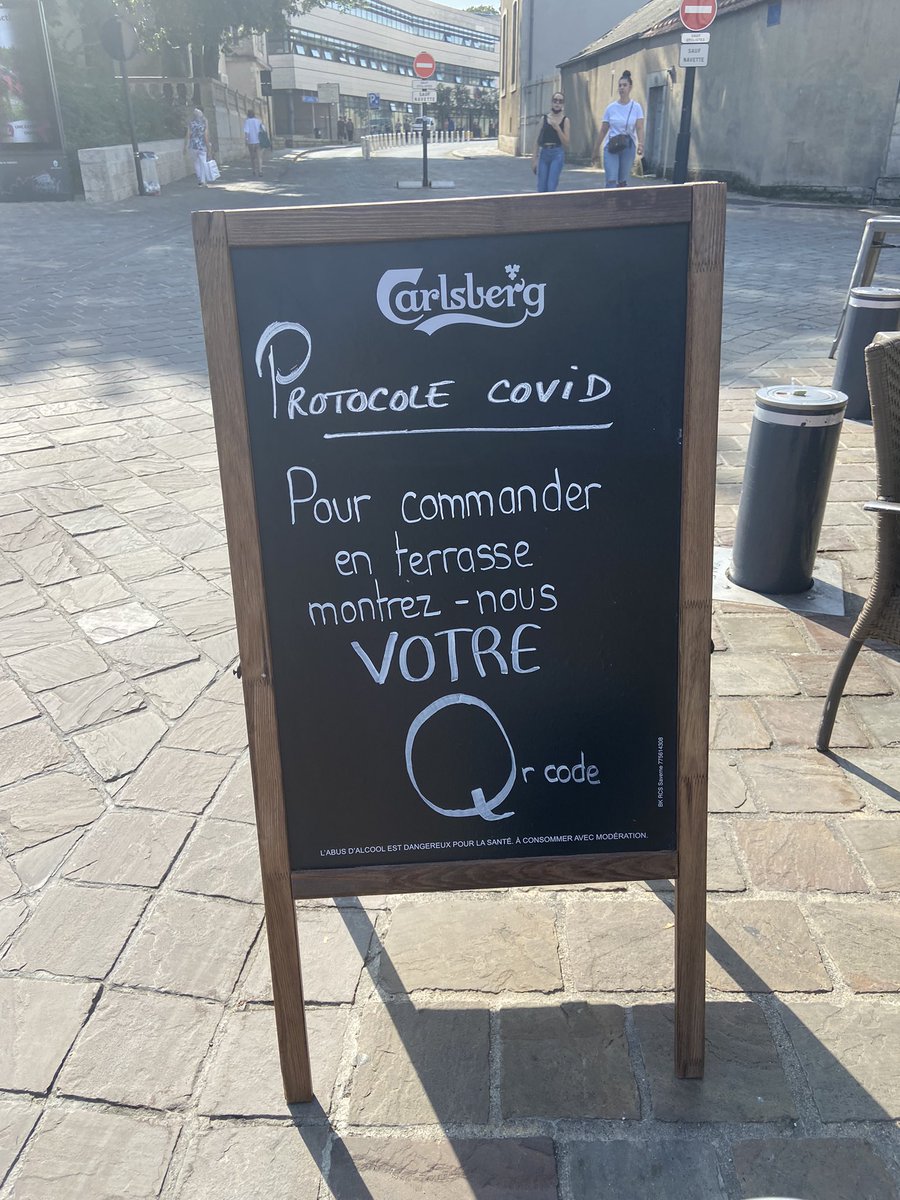 SAUF
NAVETTE
Carlsberg
PROTOCOLE COVID
Pour commander
en terrasse
montrez-nous
VOTRE
Qr code
BK RCS Saverne 775614308
L'ABUS D'ALCOOL EST DANGEREUX POUR LA SANTÉ. À CONSOMMER AVEC MODÉRATION.